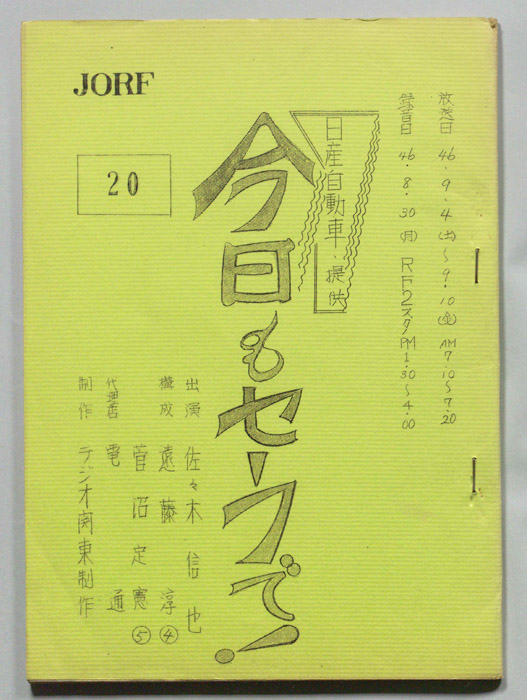 JORF
20
放送日 46.9.4(土)〜9.10(金) AM7.10〜7.20
録音日 46.8.30(月) RF2スタPM1.30〜4.00
日産自動車・提供
今日もセーフで!
出演 佐々木信也
構成 遠藤淳④
菅沼定憲⑤
代理店 電通
制作 ラジオ関東制作